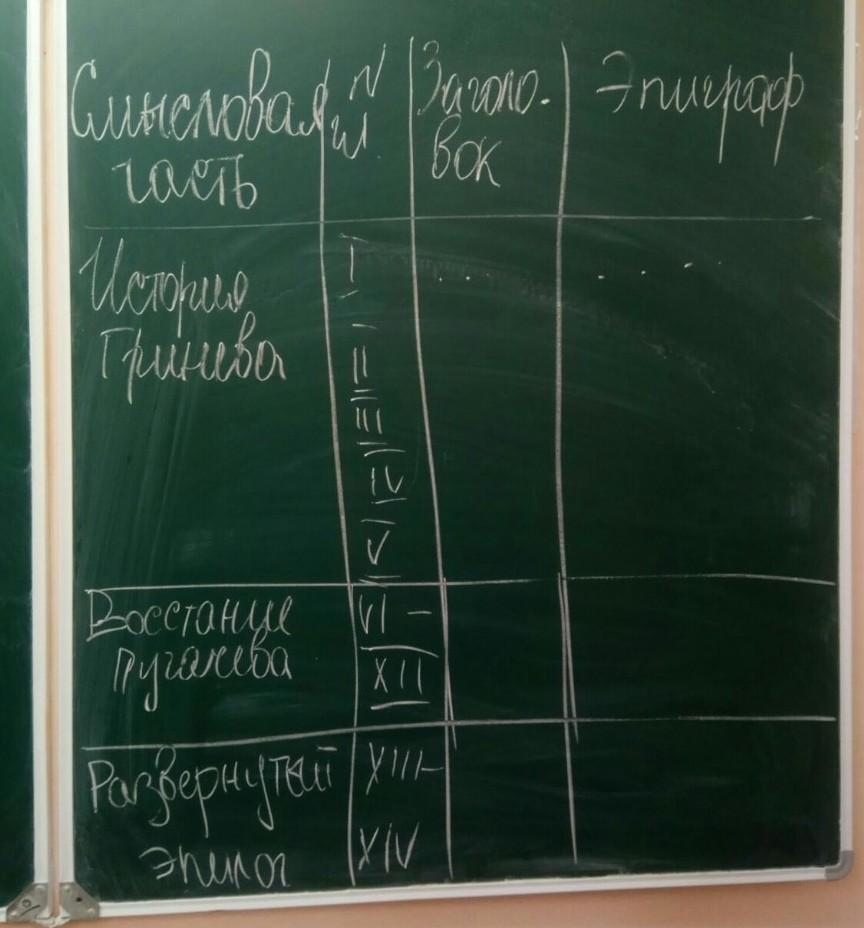 Смысловая
часть
N
гл
Заголо-
вок
Эпиграф
История
Гринева
I
. . .
. . . .
II
III
IV
V
Восстание
Пугачева
VI –
XII
Развернутый
эпилог
XIII–
XIV